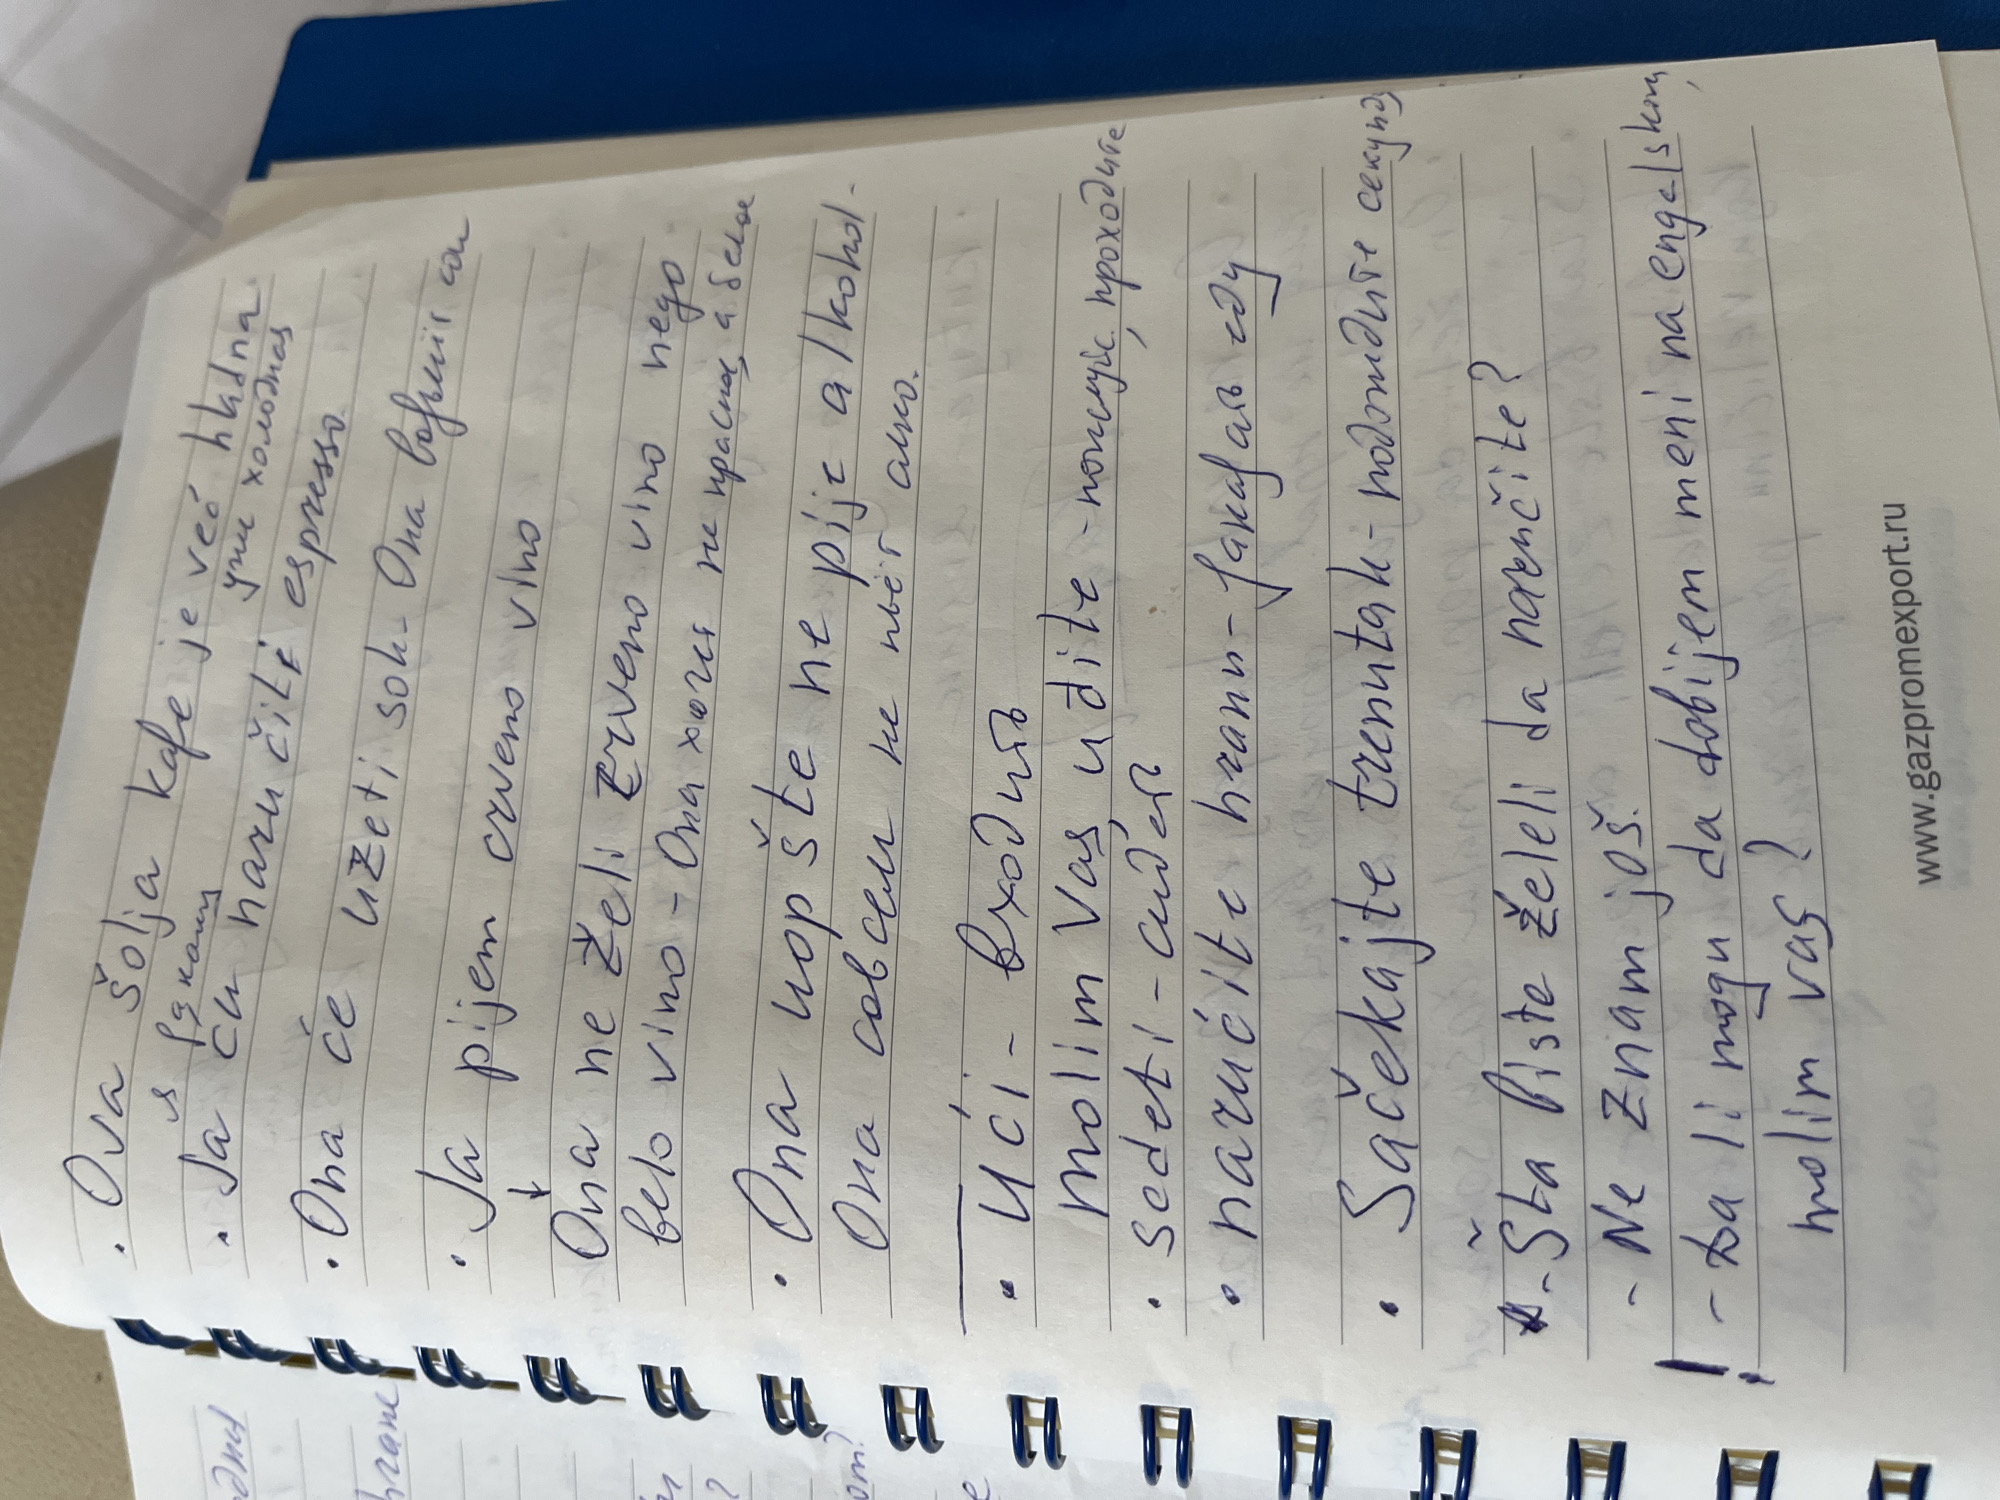 • Ova šolja kafe je već hladna
уже холодная
• Ja ću naručiti espresso
Я закажу
• Ona će uzeti sok - Она возьмёт сок
• Ja pijem crveno vino
Ona ne želi crveno vino nego
belo vino - Она хочет не красное, а белое
• Ona uopšte ne pije alkohol -
Она совсем не пьёт алко.
• ući - входить
molim vas, uđite - пожалуйс, проходите
• sedeti - сидеть
• naručite hranu - заказать еду
• Sačekajte trenutak - подождите секунду
- Šta biste želeli da naručite?
- Ne znam još.
! - Da li mogu da dobijem meni na engelskom,
molim vas?
www.gazpromexport.ru
hrane